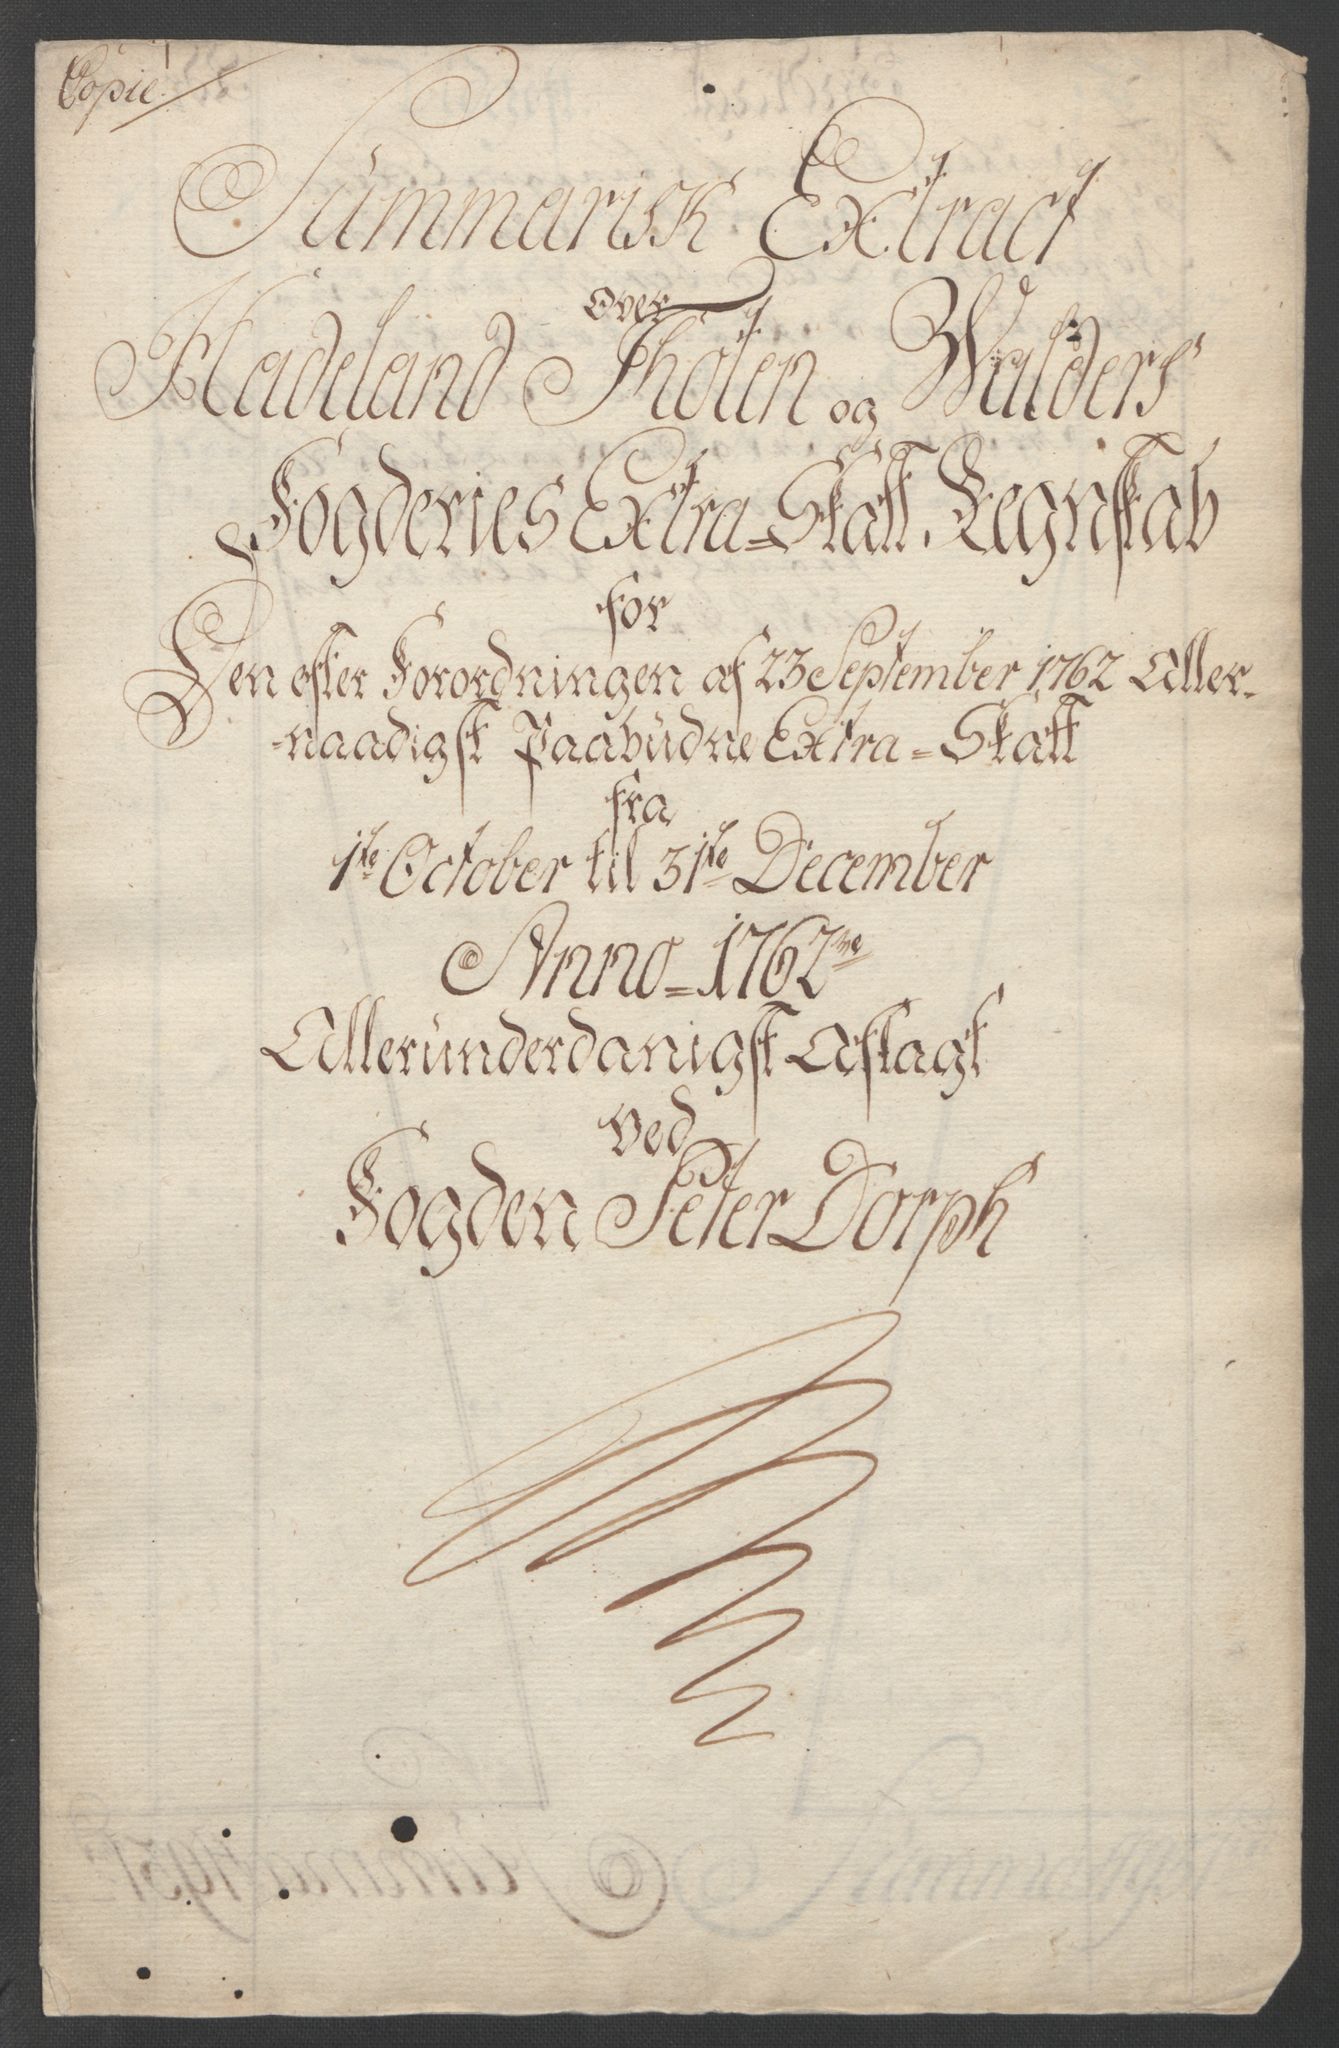 Copie
Summarisk Extract
Over
Hadeland Thoten og Walders
Fogderies Extra-Skatt Regnskab
for
Den efter Forordningen af 23 September 1762 Aller-
-naadigst Paabudne Extra-Skatt
fra
1te October til 31te December
Anno-1762
Allerunderdanigst Aflagt
ved
Fogden Peter Dorph